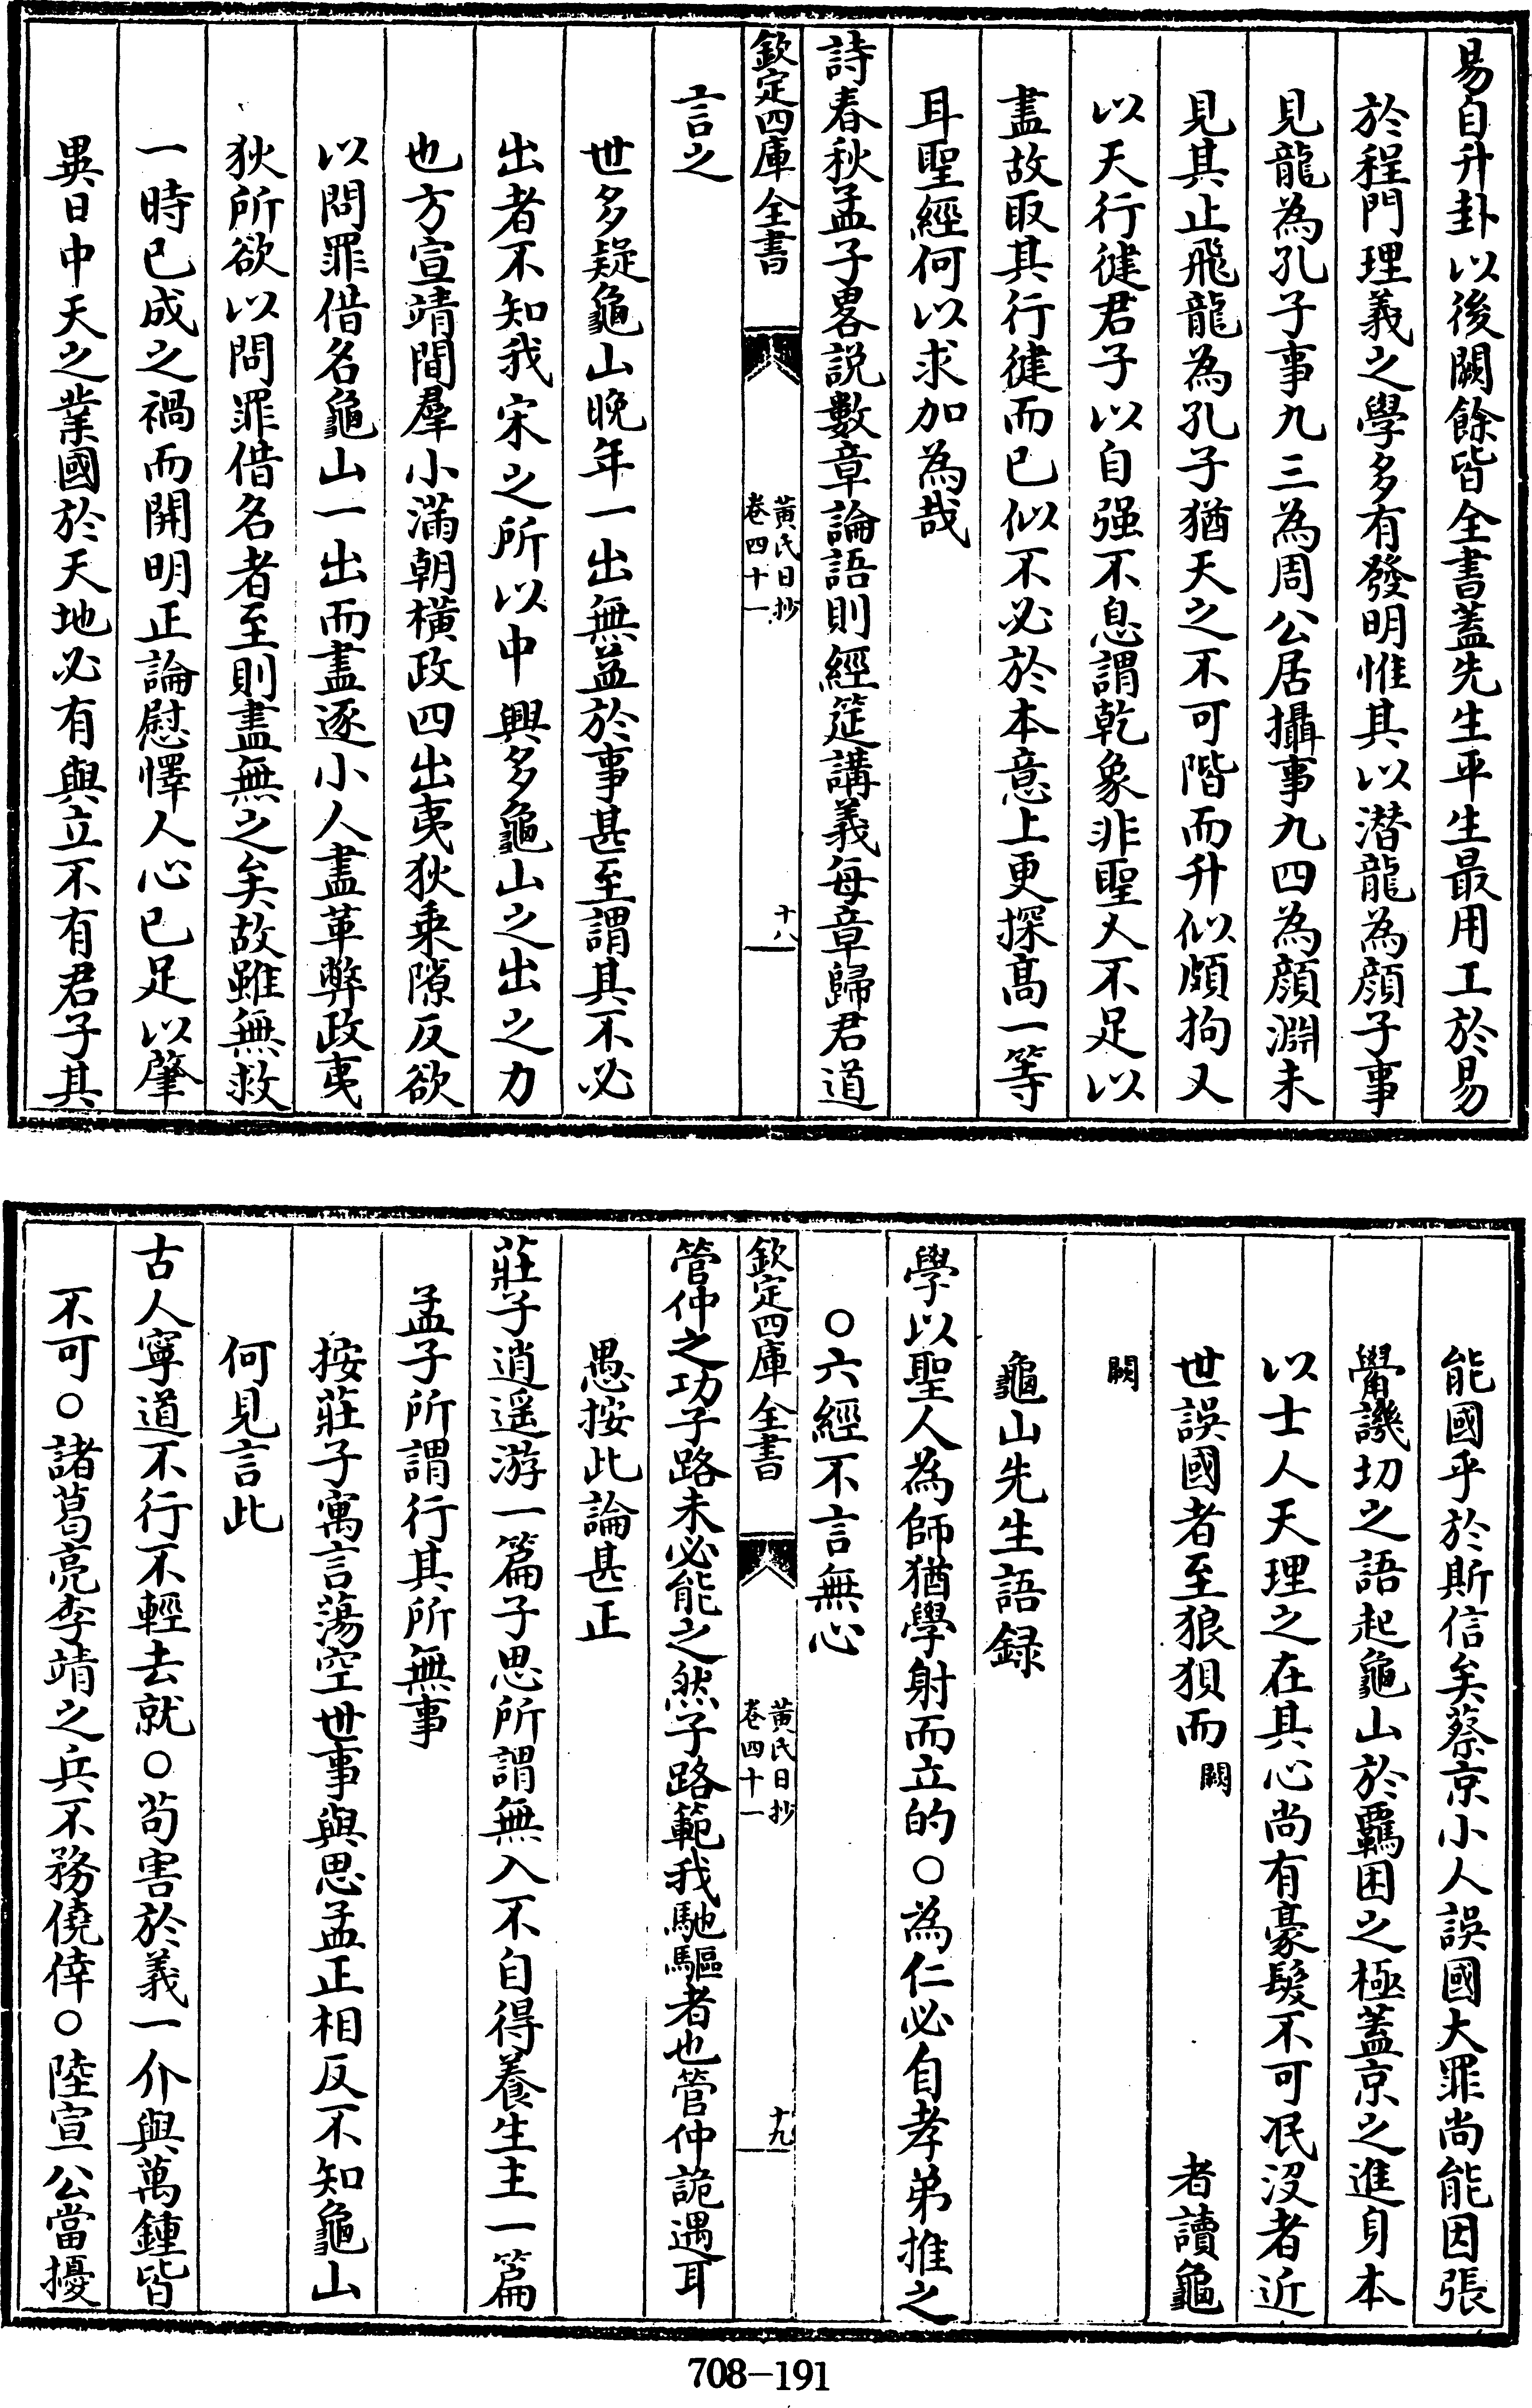 易自升卦以後闕餘皆全書蓋先生平生最用工於易
於程門理義之學多有發明惟其以潛龍為顔子事
見龍為孔子事九三為周公居攝事九四為顔淵未
見其止飛龍為孔子猶天之不可階而升似頗拘又
以天行健君子以自强不息謂乾象非聖人不足以
盡故取其行健而已似不必於本意上更探高一等
耳聖經何以求加為哉
詩春秋孟子畧説數章論語則經筵講義每章歸君道
欽定四庫全書
黄氏日抄
卷四十一
十八
言之
世多疑龜山晚年一出無益於事甚至謂其不必
出者不知我宋之所以中興多龜山之出之力
也方宣靖間羣小滿朝橫政四出夷狄乘隙反欲
以問罪借名龜山一出而盡逐小人盡革弊政夷
狄所欲以問罪借名者至則盡無之矣故雖無救
一時已成之禍而開明正論慰懌人心已足以肇
異日中天之業國於天地必有與立不有君子其
能國乎於斯信矣蔡京小人誤國大罪尚能因張
觷譏切之語起龜山於羈困之極蓋京之進身本
以士人天理之在其心尚有豪髮不可泯沒者近
世誤國者至狼狽而闕 者讀龜
闕
龜山先生語録
學以聖人為師猶學射而立的○為仁必自孝弟推之
○六經不言無心
欽定四庫全書
黄氏日抄
卷四十一
十九
管仲之功子路未必能之然子路範我馳驅者也管仲詭遇耳
愚按此論甚正
莊子逍遥游一篇子思所謂無入不自得養生主一篇
孟子所謂行其所無事
按莊子寓言蕩空世事與思孟正相反不知龜山
何見言此
古人寧道不行不輕去就○苟害於義一介與萬鍾皆
不可○諸葛亮李靖之兵不務僥倖○陸宣公當擾
708-191